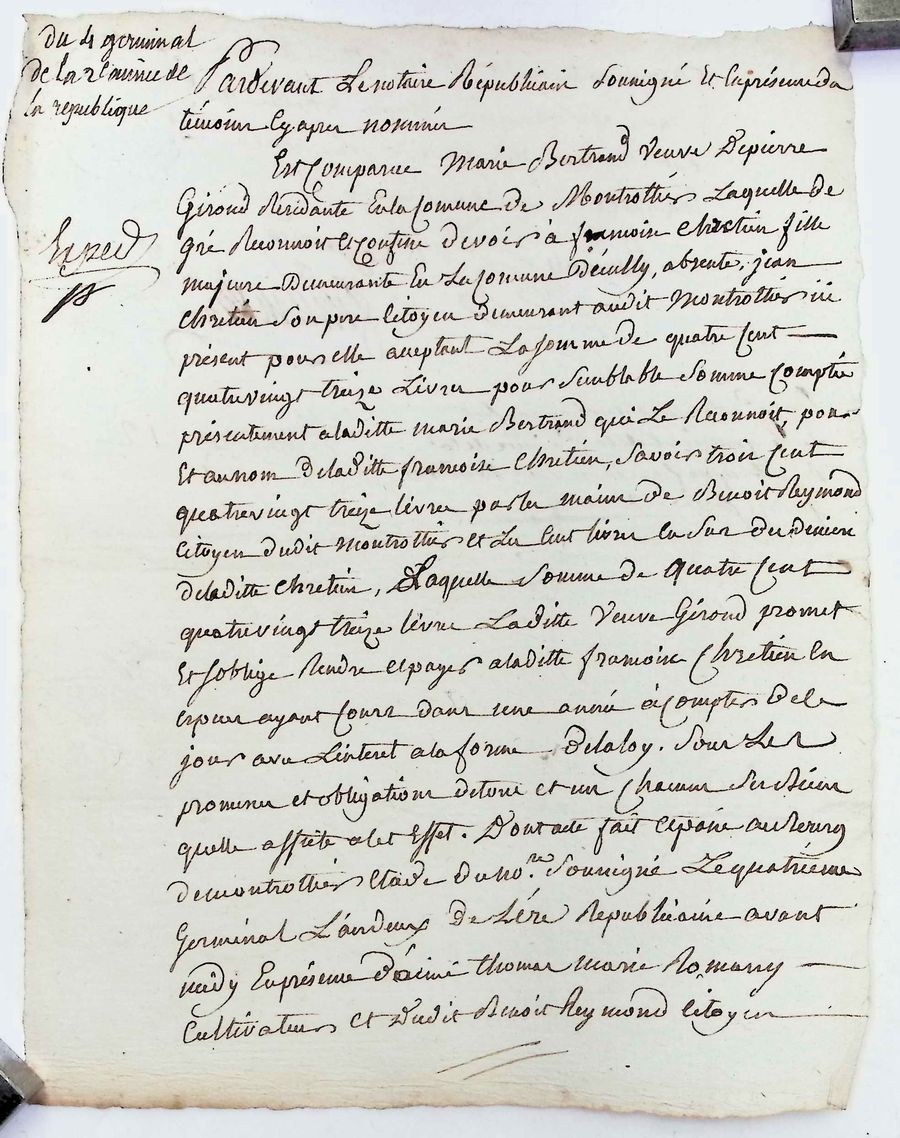 du 4 germinal
de la 2e année de
la republique
Pardevant Le notaire Républicain Soussigné Et En présence des
témoins Cy apres nommés
Est Comparue Marie Bertrand Veuve De pierre
Giroud Residante En la Comune de Montrottiér Laquelle de
gré Reconnoit et Confesse devoir à françoise Chretien fille
majeure Demeurante En La Comune D'écully, absente, jean
Chretien Son pere Citoyen demeurant audit Montrottiér ici
présent pour elle acceptant La Somme de quatre Cent
quatrevingt treize Livres pour Semblable Somme Comptée
présentement a laditte marie Bertrand qui Le Reconnoit, pour
Et au nom de laditte françoise Chretien, Savoir trois Cent
quatrevingt treize livres par les mains de Benoit Reymond
Citoyen dudit Montrottiér et Les Cent livres En Sus des deniers
de laditte Chretien, Laquelle Somme de Quatre Cent
quatrevingt treize livres Laditte Veuve Giroud promet
Et S'oblige Rendre et payer a laditte françoise Chretien En
Especes ayant Cours dans une année à Compter de Ce
jour avec L'interet a la forme de la loy. Sous Les
promesses et obligations de tous et un Chacun Ses Biens
quelle affecte a Cet Effet. Dont acte fait et passé au Bourg
de montrottiér Etude du no.re Soussigné Le quatriéme
Germinal L'an deux De L'ére Republicaine avant
midy En présence d'aimé thomas marie Romany
Cultivateur et Dudit Benoit Reymond Citoyen
Exped